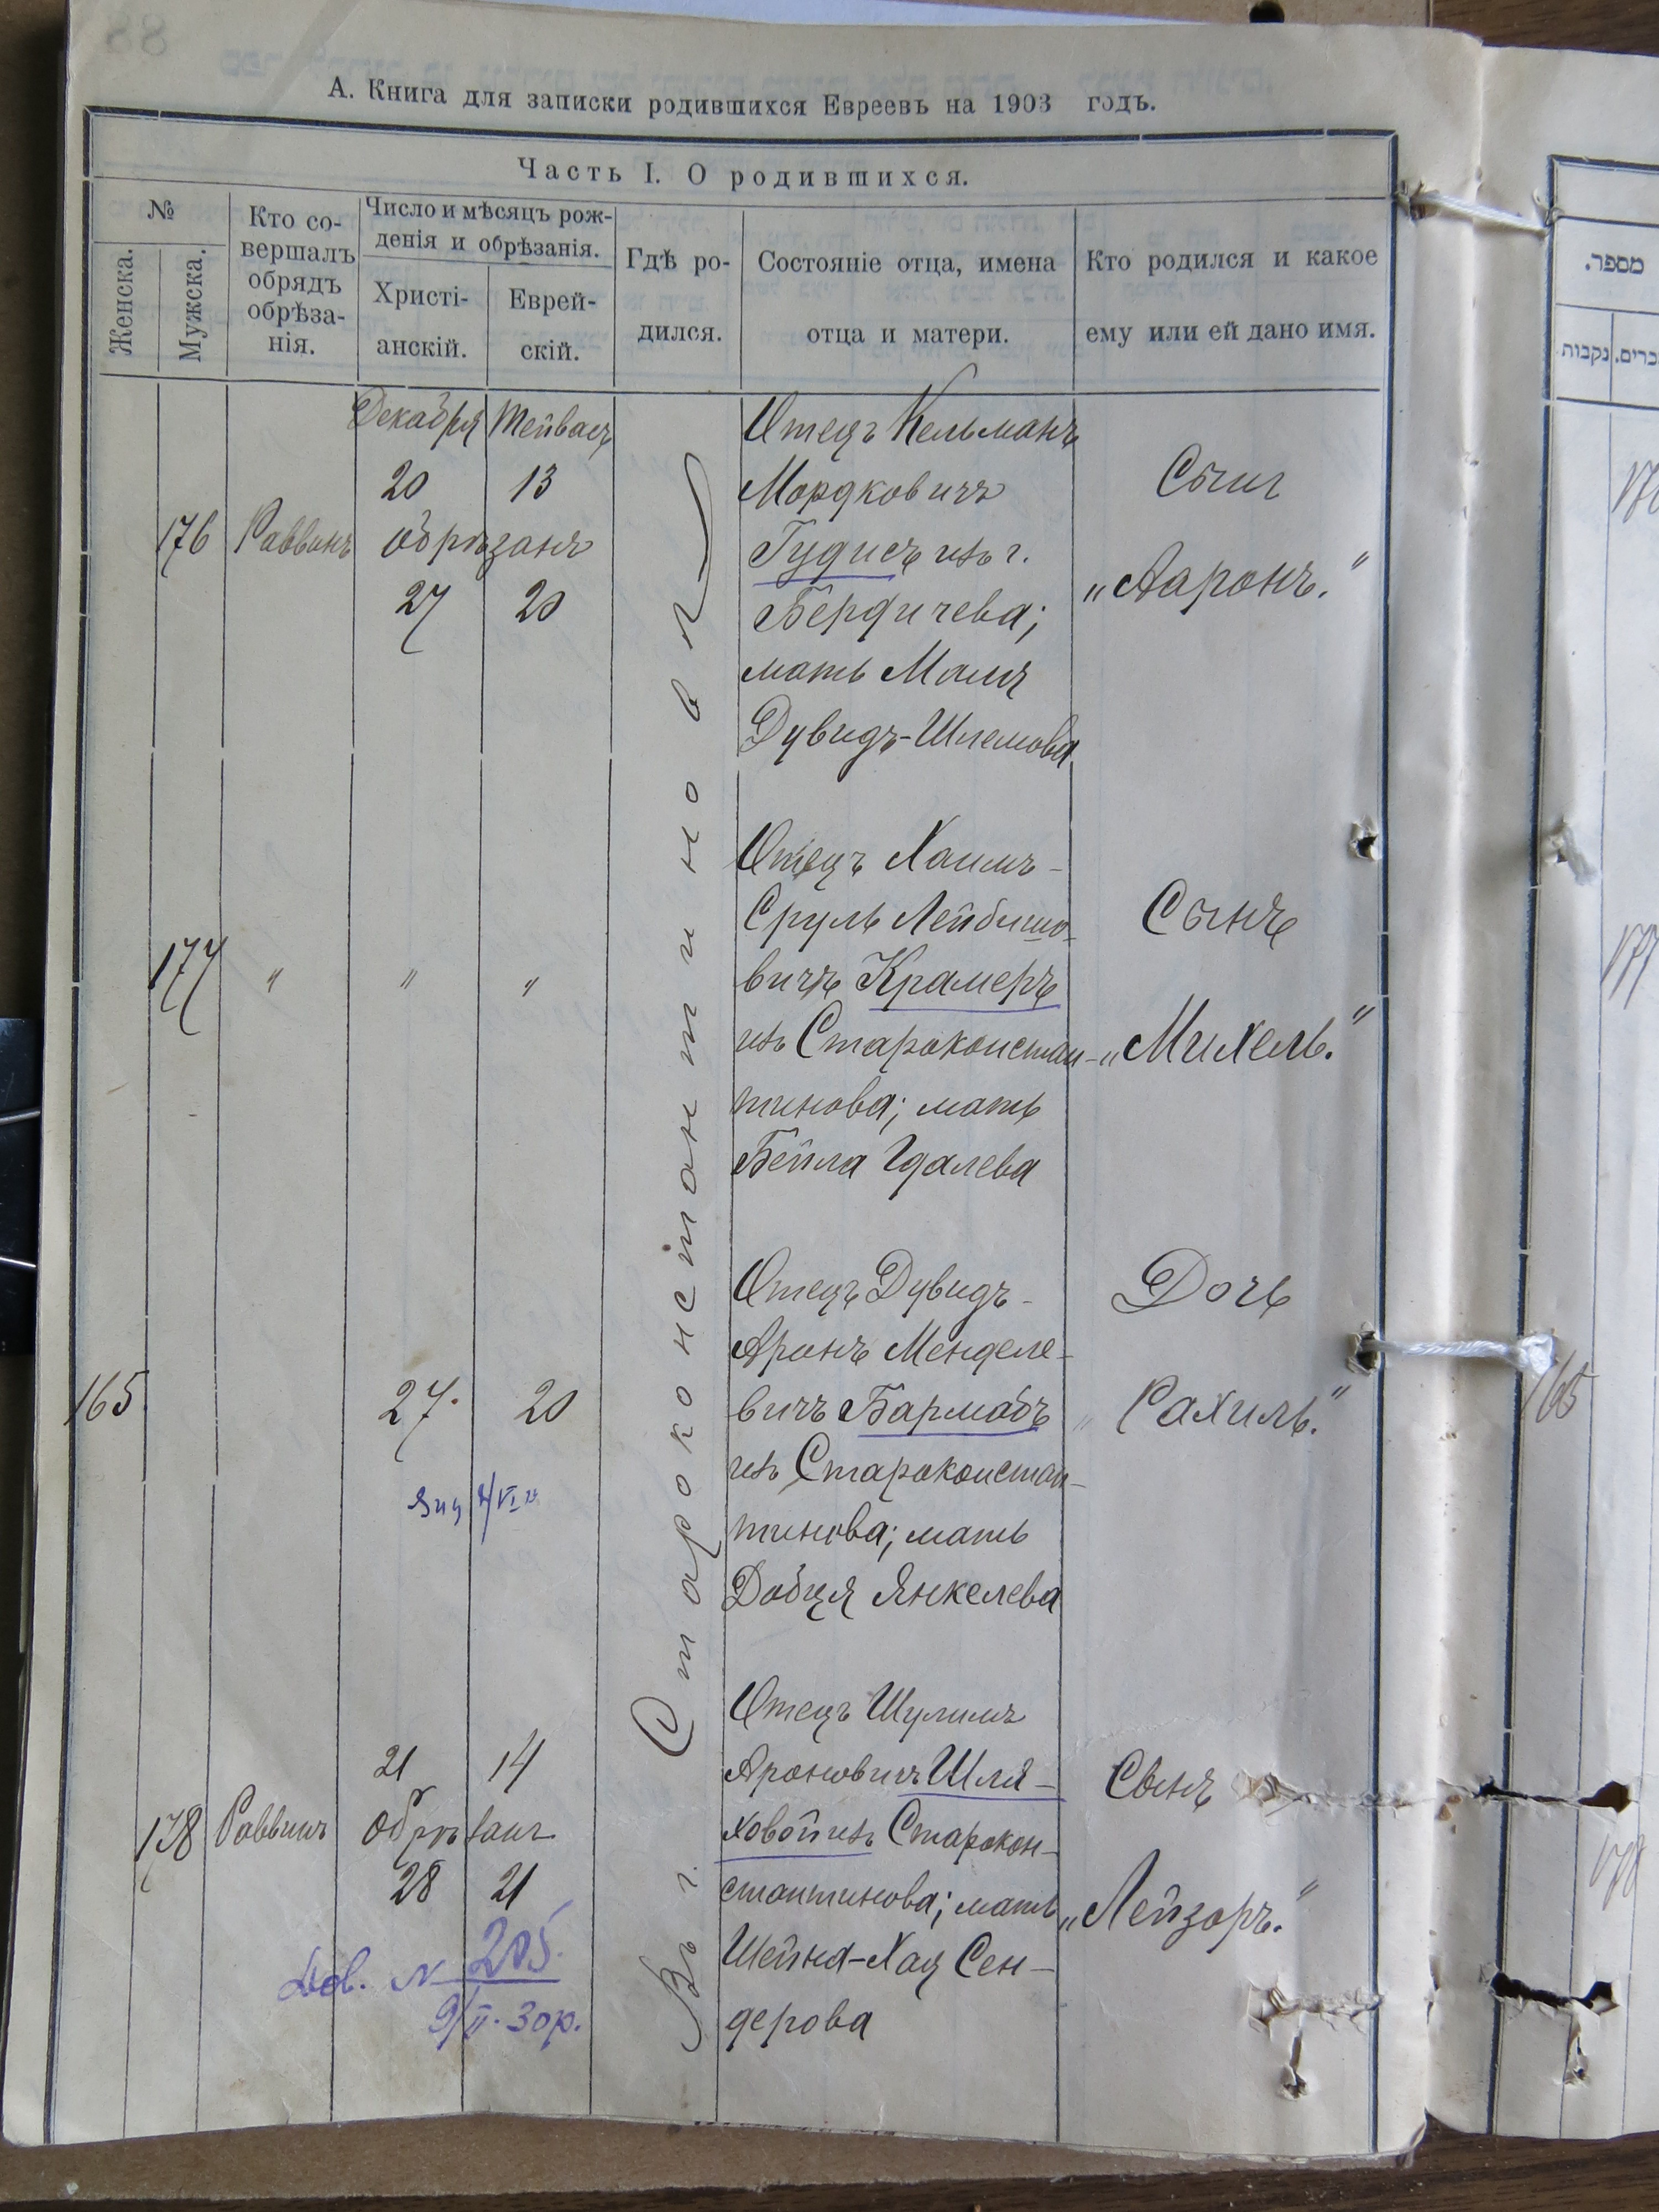 88
А. Книга для записки родившихся Евреевъ на 1903 годъ.
Часть I. О родившихся.
№
Женска.
Мужска.
Кто со-
вершалъ
обрядъ
обрѣза-
нія.
Число и мѣсяцъ рож-
денія и обрѣзанія.
Христі-
анскій.
Еврей-
скій.
Гдѣ ро-
дился.
Состояніе отца, имена
отца и матери.
Кто родился и какое
ему или ей дано имя.
Въ г. Староконстантиновѣ
176
Раввинъ
Декабря Тейвасъ
20 13
обрѣзанъ
27 20
Отецъ Кельманъ
Мордковичъ
Гудисъ изъ г.
Бердичева;
мать Маля
Дувидъ-Шлемова
Сынъ
„Ааронъ."
177
" " "
Отецъ Хаимъ-
Сруль Лейбишо-
вичъ Крамеръ
изъ Староконстан-
тинова; мать
Бейла Гдалева
Сынъ
„Михель."
165
27. 20
Отецъ Дувидъ-
Аронъ Менделе-
вичъ Бармабъ
изъ Староконстан-
тинова; мать
Добця Янкелева
Дочь
„Рахиль."
178
Раввинъ
21 14
обрѣзанъ
28 21
Отецъ Шулимъ
Ароновичъ Шля-
ховой изъ Старокон-
стантинова; мать
Шейна-Хая Сен-
дерова
Сынъ
„Лейзоръ."
Дов. N 205
9/II-30р.
מספר.
נקבות
176
177
165
178